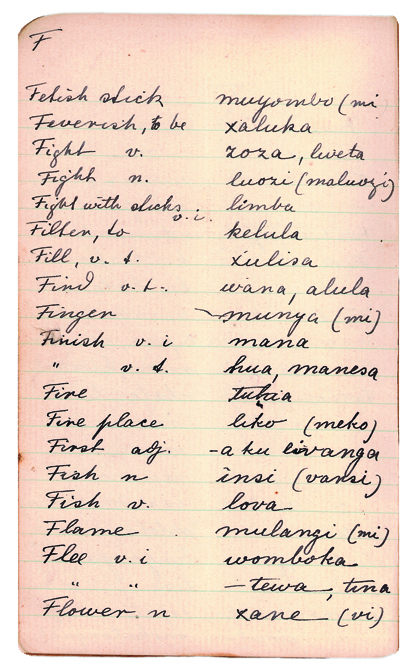 F
Fetish stick muyombo (mi
Feverish, to be xaluka
Fight v. zoza, lweta
Fight n. luozi (maluozi)
Fight with sticks v.i. limba
Filter, to kelula
Fill, v. t. xulisa
Find v. t. wana, alula
Finger munya (mi)
Finish v. i mana
" v. t. hua, manesa
Fire tuhia
Fire place liko (meko)
First adj. -a ku livanga
Fish n insi (vansi)
Fish v. lova
Flame mulangi (mi)
Flee v. i womboka
" " - tewa, tina
Flower n xane (vi)